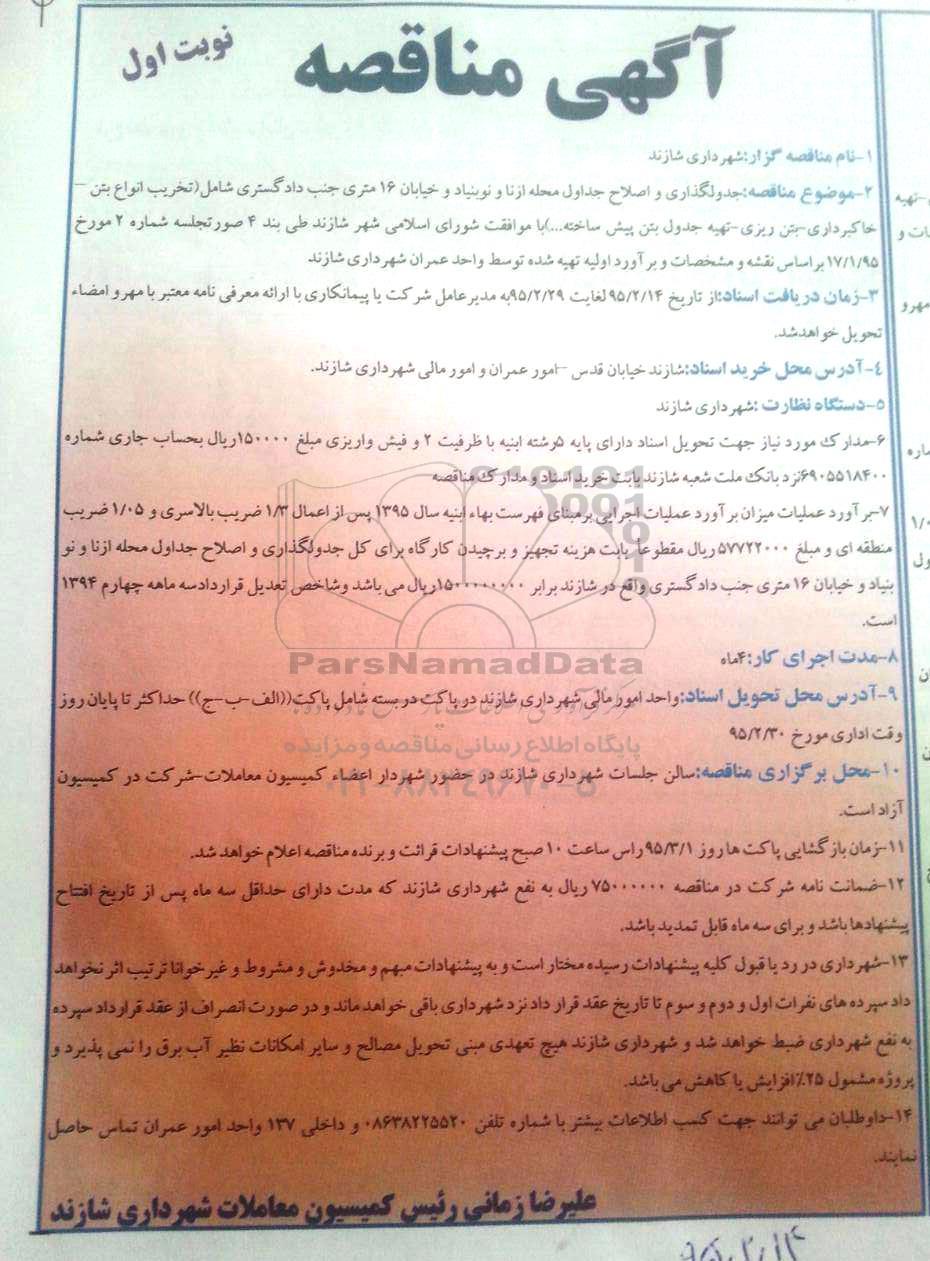 آگهی مناقصه
نوبت اول
۱-نام مناقصه گزار:شهرداری شازند
۲-موضوع مناقصه:جدولگذاری و اصلاح جداول محله ازنا و نوبنیاد و خیابان ۱۶ متری جنب دادگستری شامل(تخریب انواع بتن –
خاکبرداری-بتن ریزی-تهیه جدول بتن پیش ساخته...)با موافقت شورای اسلامی شهر شازند طی بند ۴ صورتجلسه شماره ۲ مورخ
۱۷/۱/۹۵براساس نقشه و مشخصات و برآورد اولیه تهیه شده توسط واحد عمران شهرداری شازند
۳-زمان دریافت اسناد:از تاریخ ۹۵/۲/۱۴ لغایت ۹۵/۲/۲۹به مدیرعامل شرکت یا پیمانکاری با ارائه معرفی نامه معتبر با مهرو امضاء
تحویل خواهدشد.
۴-آدرس محل خرید اسناد:شازند خیابان قدس –امور عمران و امور مالی شهرداری شازند.
۵-دستگاه نظارت :شهرداری شازند
۶-مدارک مورد نیاز جهت تحویل اسناد دارای پایه ۵رشته ابنیه با ظرفیت ۲ و فیش واریزی مبلغ ۱۵۰۰۰۰ریال بحساب جاری شماره
۶۹۰۵۵۱۸۴۰۰نزد بانک ملت شعبه شازند بابت خرید اسناد و مدارک مناقصه
۷-برآورد عملیات میزان برآورد عملیات اجرایی برمبنای فهرست بهاء ابنیه سال ۱۳۹۵ پس از اعمال ۱/۳ ضریب بالاسری و ۱/۰۵ ضریب
منطقه ای و مبلغ ۵۷۷۲۲۰۰۰ ریال مقطوعاً بابت هزینه تجهیز و برچیدن کارگاه برای کل جدولگذاری و اصلاح جداول محله ازنا و نو
بنیاد و خیابان ۱۶ متری جنب دادگستری واقع در شازند برابر ۱۵۰۰۰۰۰۰۰۰ریال می باشد وشاخص تعدیل قراردادسه ماهه چهارم ۱۳۹۴
است.
۸-مدت اجرای کار:۴ماه
۹-آدرس محل تحویل اسناد:واحد امور مالی شهرداری شازند دو پاکت دربسته شامل پاکت((الف-ب-ج)) حداکثر تا پایان روز
وقت اداری مورخ ۹۵/۲/۳۰
۱۰-محل برگزاری مناقصه:سالن جلسات شهرداری شازند در حضور شهردار اعضاء کمیسیون معاملات-شرکت در کمیسیون
آزاد است.
۱۱-زمان بازگشایی پاکت ها روز ۹۵/۳/۱راس ساعت ۱۰ صبح پیشنهادات قرائت و برنده مناقصه اعلام خواهد شد.
۱۲-ضمانت نامه شرکت در مناقصه ۷۵۰۰۰۰۰۰ ریال به نفع شهرداری شازند که مدت دارای حداقل سه ماه پس از تاریخ افتتاح
پیشنهادها باشد و برای سه ماه قابل تمدید باشد.
۱۳-شهرداری در رد یا قبول کلیه پیشنهادات رسیده مختار است و به پیشنهادات مبهم و مخدوش و مشروط و غیرخوانا ترتیب اثر نخواهد
داد سپرده های نفرات اول و دوم و سوم تا تاریخ عقد قرار داد نزد شهرداری باقی خواهد ماند و در صورت انصراف از عقد قرارداد سپرده
به نفع شهرداری ضبط خواهد شد و شهرداری شازند هیچ تعهدی مبنی تحویل مصالح و سایر امکانات نظیر آب برق را نمی پذیرد و
پروژه مشمول ۲۵٪افزایش یا کاهش می باشد.
۱۴-داوطلبان می توانند جهت کسب اطلاعات بیشتر با شماره تلفن ۰۸۶۳۸۲۲۵۵۲۰ و داخلی ۱۳۷ واحد امور عمران تماس حاصل
نمایند.
علیرضا زمانی رئیس کمیسیون معاملات شهرداری شازند
ParsNamadData
پایگاه اطلاع رسانی مناقصه و مزایده
۰۲۱-۸۸۳۴۹۶۷۰-۵